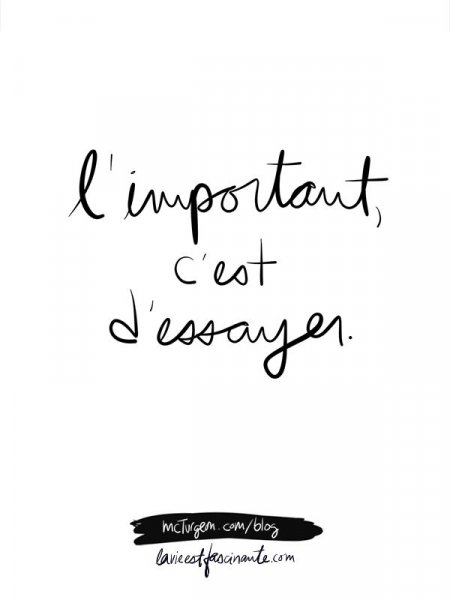 l'important,
c'est
d'essayer.
mcTurgem.com/blog
lavieestfascinante.com